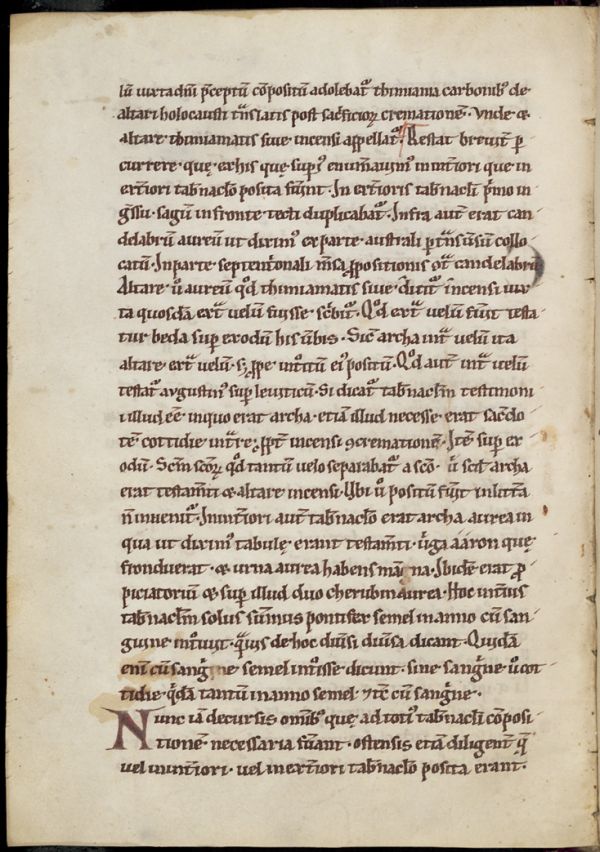 lū iuxta dn̄i p̄ceptū cōpositū adolebat᷑ thimiama carbonib; de
altari holocausti t̄nslatis post sac̄ficioꝝ cremationē. Vnde &
altare thimiamatis siue incensi appellat᷑. Restat breuit̄ ꝑ
currere quę ex his quę supͥ enum̄auim᷒ in int̄iori que in
ext̄iori tab̄naclo posita fuer̄t. In ext̄ioris tab̄nacli p̄mo in
gͥssu sagū in fronte tecti duplicabat᷑. Infra aut̄ erat can
delabrū aureū ut dixim᷒ ex parte australi ꝑ t̄nsūsū collo
catū. In parte septent̄onali m̄sa ꝓpositionis ꝯt̄ candelabrū
Altare u᷒ aureū qd̄ thimiamatis siue dicit᷑ incensi iux
ta quosdā ext̄ uelū fuisse sc̄bit᷑. Qd̄ ext̄ uelū fuer̄t testa
tur beda sup̄ exodū his ūbis. Sic̄ archa int̄ uelū ita
altare ext̄ uelū. s; ꝓpe int̄oitū ei᷒ positū. Qd̄ aut̄ int̄ uelū
testat᷑ avgustin᷒ sup̄ leuiticū. Si dicat᷑ tab̄naclm̄ testimoni
i illud eē in quo erat archa. etiā illud necesse erat sac̄do
tē cottidie int̄re ꝓpt̄ incensi ꝯcremationē. Itē sup̄ ex
odū. Sc̄m sc̄oꝝ qd̄ tantū uelo separabat᷑ a sc̄o. u᷒ scil᷒ archa
erat testam̄ti & altare incensi. Ubi u᷒ positū fuer̄t in litt̄a
n̄ inuenit᷑. In int̄iori aut̄ tab̄naclo erat archa aurea in
qua ut dixim᷒ tabulę erant testam̄ti. uͥga aaron quę
fronduerat. & urna aurea habens manna. Ibidē erat ꝓ
piciatoriū & sup̄ illud duo cherubin aurea. Hoc int̄ius
tab̄naclm̄ solus sūmus pontifex semel in anno cū san
guine int̄uit. qͣuis de hoc diu̅si diu̅sa dicant. Quidā
enī cū sangͥne semel int̄isse dicunt. sine sangͥne u᷒ cot
tidie. qͥdā tantū in anno semel. ⁊ tc̄ cū sangͥne.
Nunc iā decursis omīb; quę ad toti᷒ tab̄nacli cōposi
tionē necessaria fuerant. ostensis etiā diligent̄ qͤ
uel in int̄iori. uel in ext̄iori tab̄naclo posita erant.